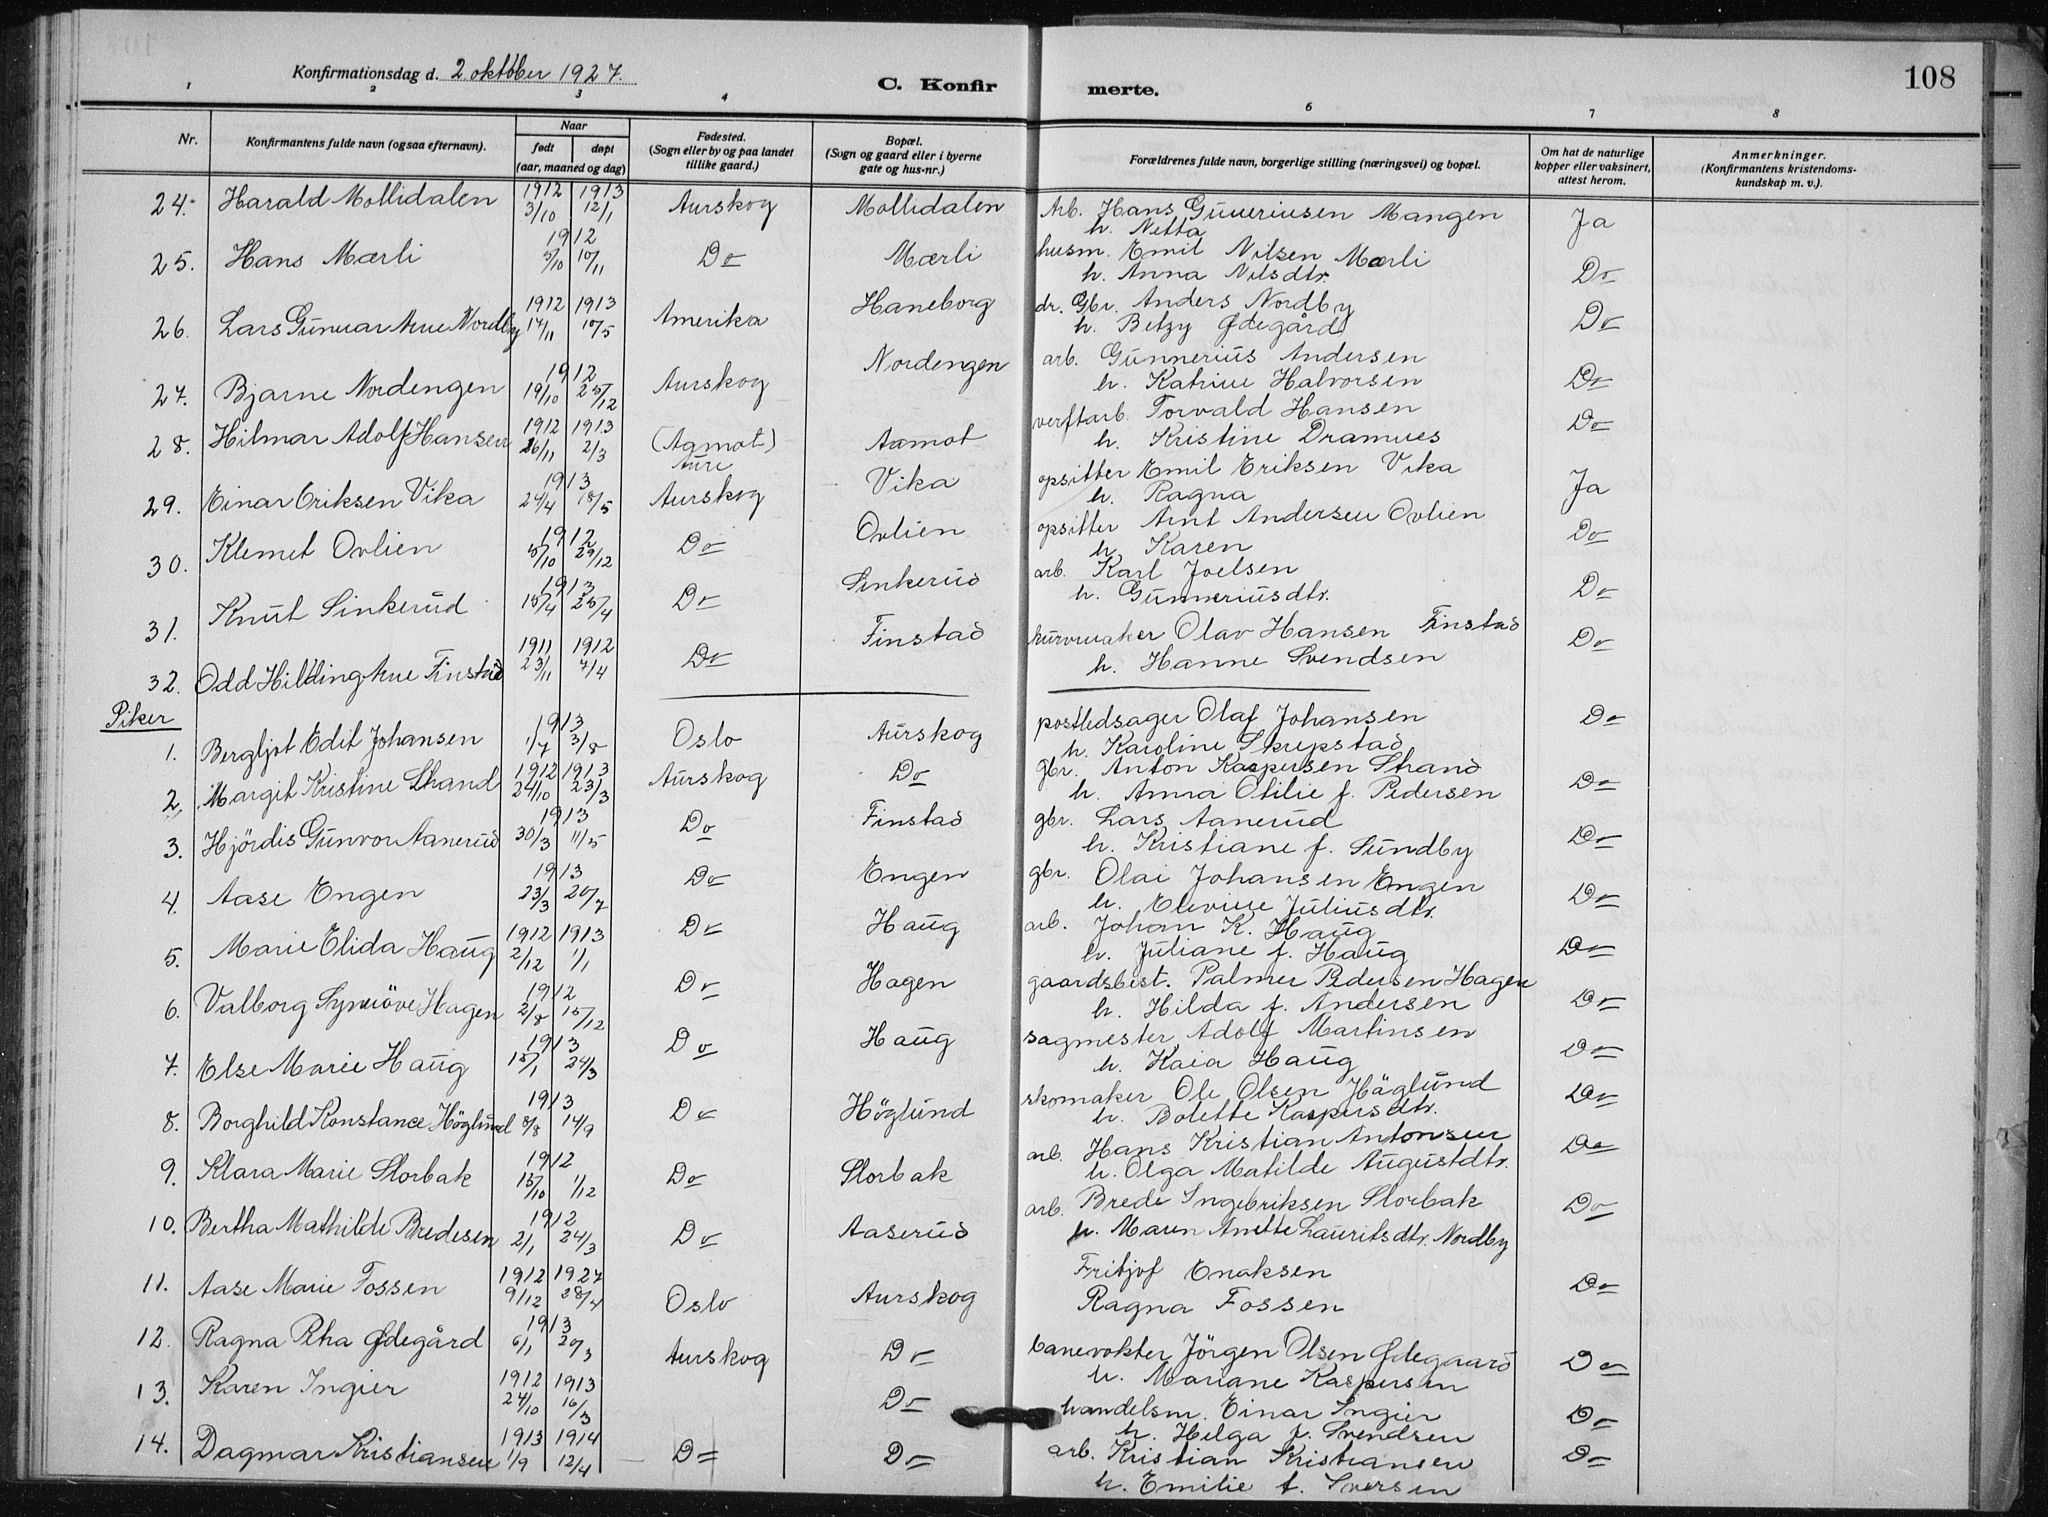 108
Konfirmationsdag d. 2 oktober 1927.
C. Konfirmerte.
1 2 3 4 6 7 8
Nr. Konfirmantens fulde navn (ogsaa efternavn). Naar født døpt (aar, maaned og dag) Fødested. (Sogn eller by og paa landet tillike gaard.) Bopæl. (Sogn og gaard eller i byerne gate og hus-nr.) Forældrenes fulde navn, borgerlige stilling (næringsvei) og bopæl. Om hat de naturlige kopper eller vaksinert, attest herom. Anmerkninger. (Konfirmantens kristendomskundskap m. v.).
24. Harald Mollidalen 1912 3/10 1913 12/1 Aurskog Mollidalen Arb. Hans Mangen Ja
h. Netta
25. Hans Mærli 1912 5/10 10/11 Do Mærli husm. Emil Nilsen Mærli Do
h. Anna Nilsdtr.
26. Lars Gunnar Nordby 1912 14/11 1913 10/5 Amerika Haneborg dr. Gbr. Anders Nordby Do
h. Betzy Ødegård
27. Bjarne Nordengen 1912 19/10 25/12 Aurskog Nordengen arb. Gunnerius Andersen Do
h. Katrine Halvorsen
28. Hilmar Adolf Hansen 1912 26/11 1913 2/3 (Aamot) Aure Aamot verftarb. Torvald Hansen Do
h. Kristine
29. Einar Eriksen Vika 1913 24/4 18/5 Aurskog Vika opsitter Emil Eriksen Vika Ja
h. Ragna
30. Klemet Ovlien 1912 5/10 29/12 Do Ovlien opsitter Arnt Andersen Ovlien Do
h. Karen
31. Knut Sinkerud 1913 15/4 25/4 Do Sinkerud arb. Karl Joelsen Do
h. Gunneriusdtr.
32. Odd Hilding Finstad 1911 23/11 1912 7/4 Do Finstad kurvmaker Olav Hansen Finstad Do
h. Hanne Svendsen
Piker
1. Bergljot Edit Johansen 1913 1/7 3/8 Oslo Aurskog postledsager Olaf Johansen Do
h. Karoline Skrepstad
2. Margit Kristine Strand 1912 24/10 1913 23/3 Aurskog Do gbr. Anton Kaspersen Strand Do
h. Anna Otilie f. Pedersen
3. Hjördis Gunvor Aanerud 1913 30/3 11/5 Do Finstad gbr. Lars Aanerud Do
h. Kristiane f. Sundby
4. Aase Engen 1913 23/3 20/7 Do Engen gbr. Olai Johansen Engen Do
h. Elevine Juliusdtr.
5. Marie Elida Haug 1912 2/12 1913 1/1 Do Haug arb. Johan K. Haug Do
h. Juliane f. Haug
6. Valborg Synnöve Hagen 1912 2/8 15/12 Do Hagen gaardsbest. Palmer Pedersen Hagen Do
h. Hilda f. Andersen
7. Else Marie Haug 1913 15/1 24/3 Do Haug sagmester Adolf Martinsen Do
h. Kaia Haug
8. Borghild Konstance Höglund 1913 8/8 14/9 Do Höglund skomaker Ole Olsen Häglund Do
h. Bolette Kaspersdtr.
9. Klara Marie Slorbak 1912 15/10 1/12 Do Slorbak arb. Hans Kristian Antonsen Do
h. Olga Matilde Augustdtr.
10. Bertha Mathilde Bredesen 1912 2/1 24/3 Do Aaserud arb. Brede Ingebriksen Slorbak Do
h. Maren Anette Lauritsdtr. Nordby
11. Aase Marie Fossen 1912 9/12 1927 28/4 Oslo Aurskog Fritjof Enaksen Do
Ragna Fossen
12. Ragna Ødegård 1913 6/1 20/3 Aurskog Do banevokter Jörgen Olsen Ødegaard Do
h. Mariane Kaspersen
13. Karen Ingier 1912 24/10 1913 16/3 Do handelsm. Einar Ingier Do
h. Helga f. Svendsen
14. Dagmar Kristiansen 1913 1/9 1914 12/4 Do Do arb. Kristian Kristiansen Do
h. Emilie f. Iversen